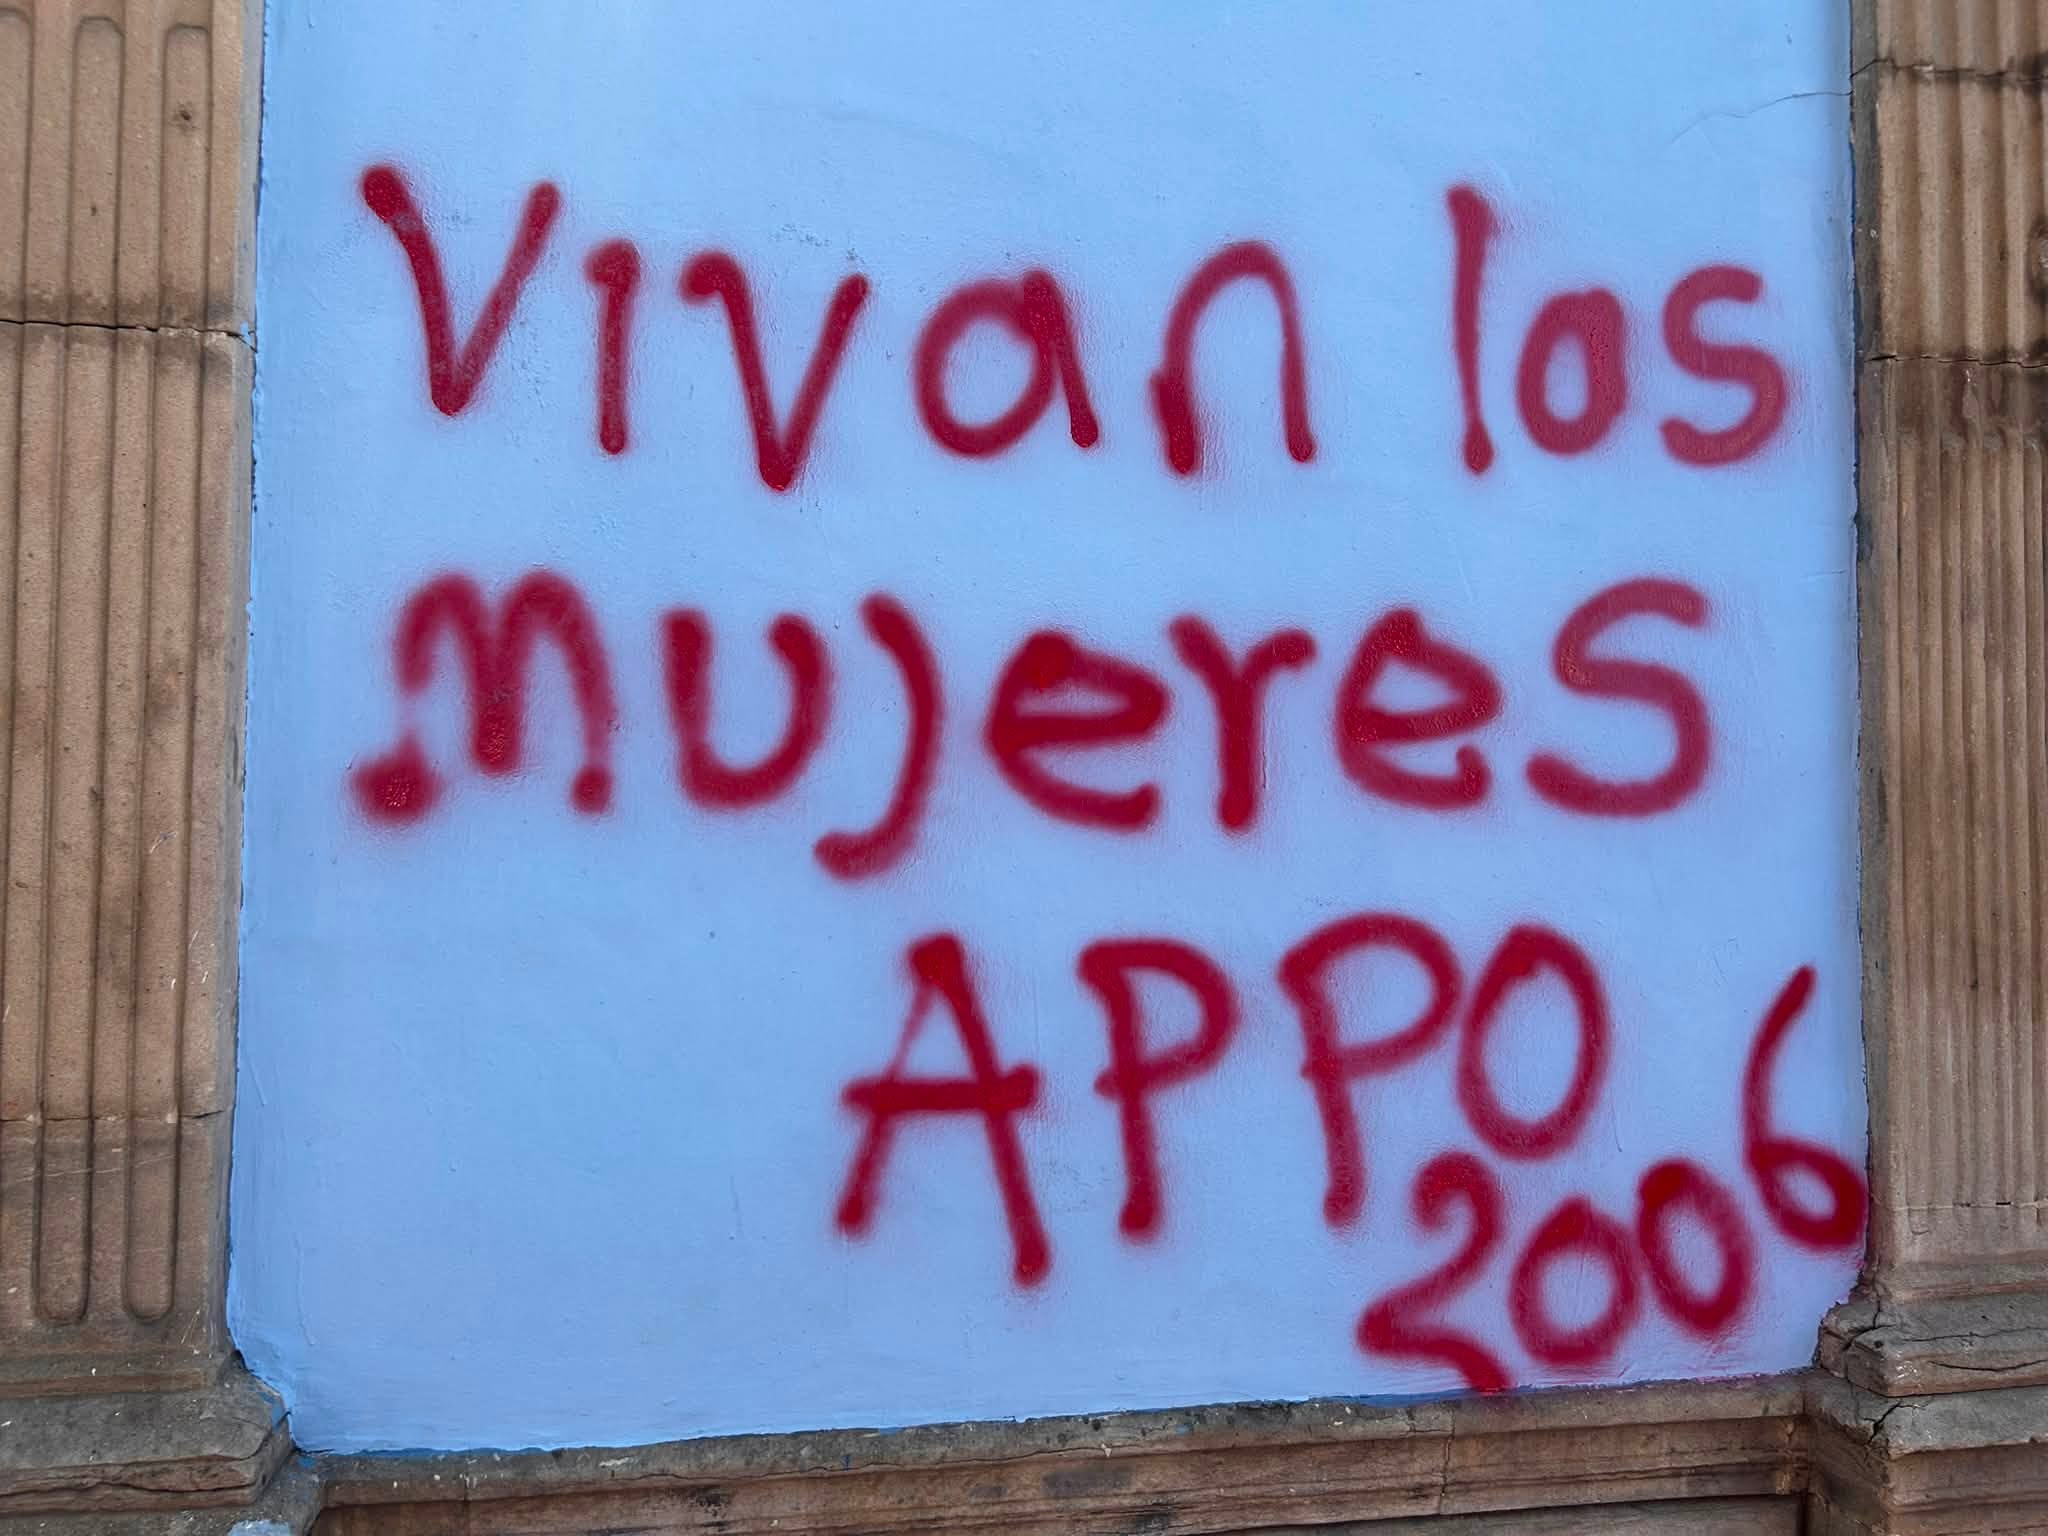 Vivan las
mujeres
APPO
2006